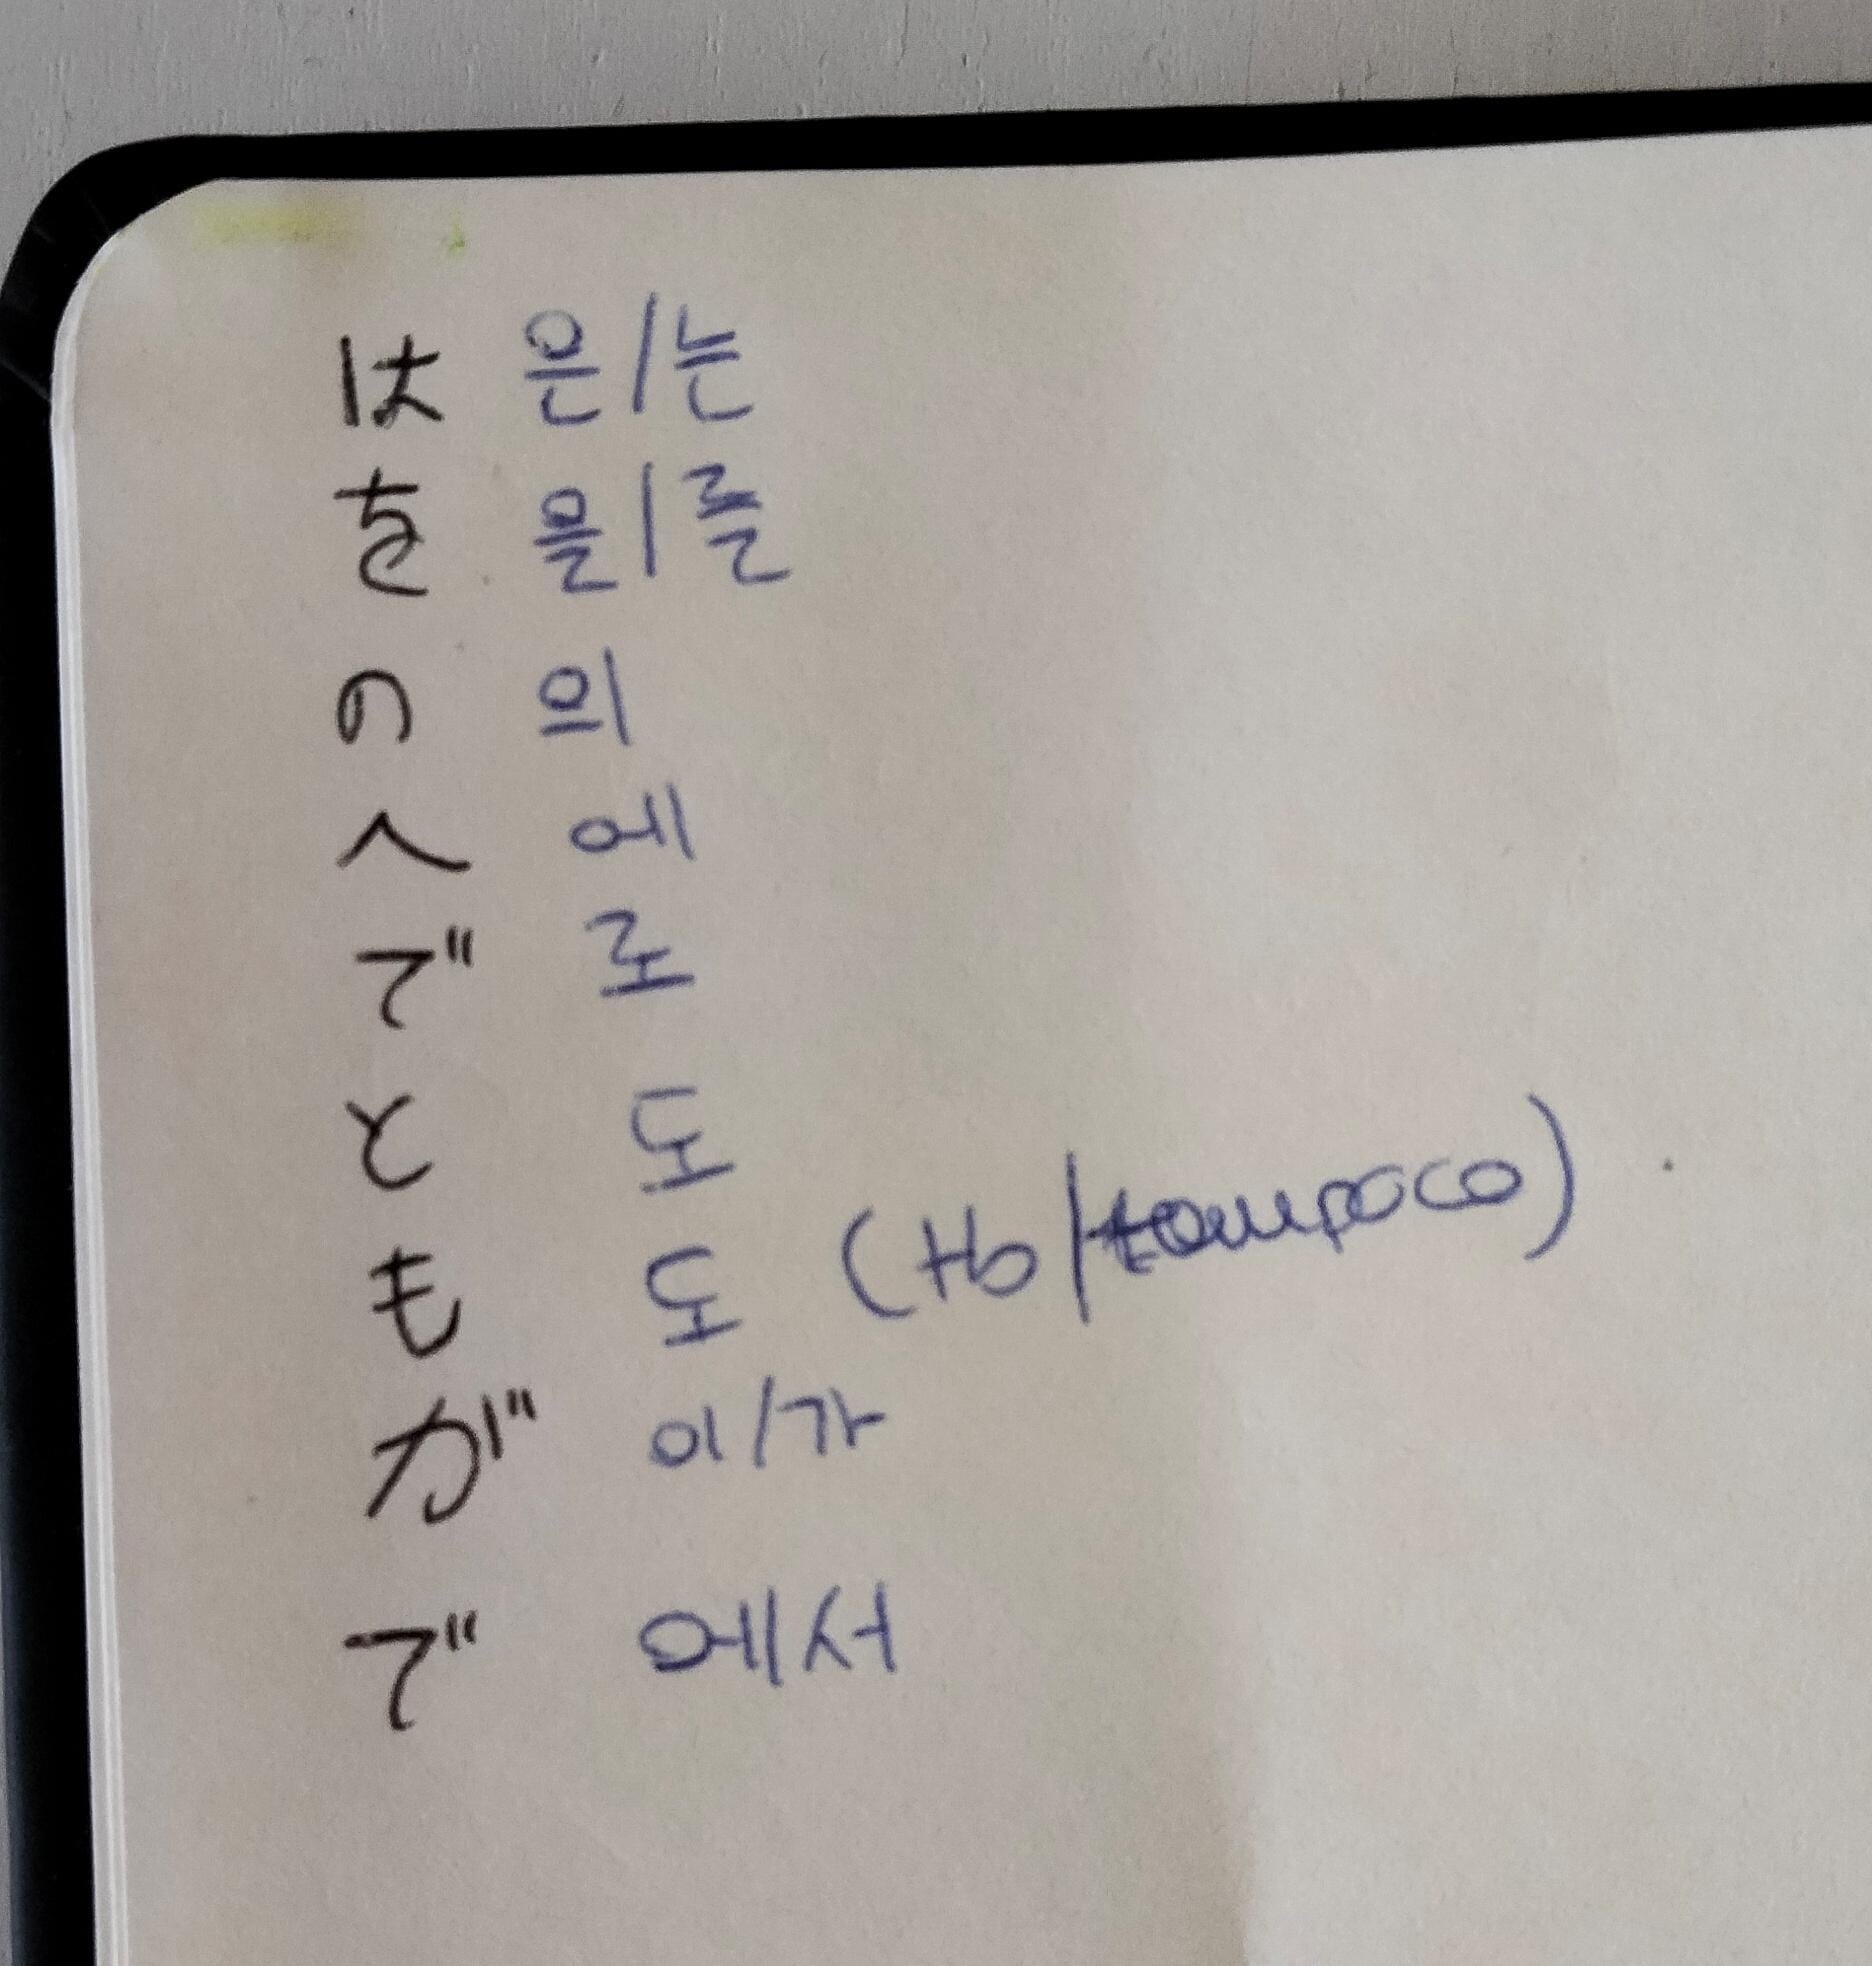 は 은/는
を 을/를
の 의
へ 에
で 로
と 도
も 도 (tb/tampoco)
が 이/가
で 에서